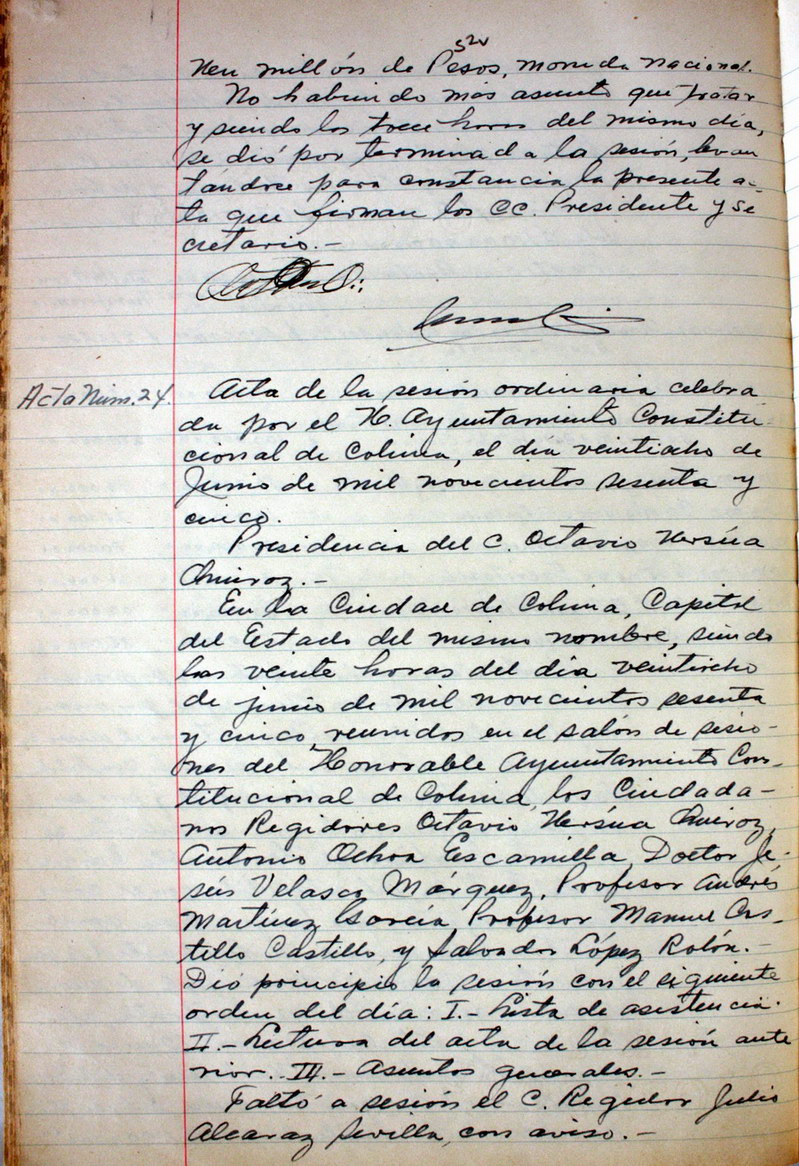 Un millón de Pesos, moneda nacional.
No habiendo más asunto que tratar
y siendo las trece horas del mismo día,
se dió por terminada la sesión, levan
tándose para constancia la presente ac-
ta que firman los CC. Presidente y Se
cretario.-
Acta Núm. 24.
Acta de la sesión ordinaria celebra
da por el H. Ayuntamiento Constitu
cional de Colima, el día veintiocho de
Junio de mil novecientos sesenta y
cinco.
Presidencia del C. Octavio Ursúa
Quiroz.-
En la Ciudad de Colima, Capital
del Estado del mismo nombre, siendo
las veinte horas del día veintiocho
de junio de mil novecientos sesenta
y cinco reunidos en el salón de sesio-
nes del Honorable Ayuntamiento Cons-
titucional de Colima, los Ciudada-
nos Regidores Octavio Ursúa Quiroz,
Antonio Ochoa Escamilla, Doctor Je-
sús Velasco Márquez, Profesor Andrés
Martínez García, Profesor Manuel Cas-
tillo Castillo, y Salvador López Rolón.-
Dió principio la sesión con el siguiente
orden del día: I.- Lista de asistencia.
II.- Lectura del acta de la sesión ante
rior.. III.- Asuntos generales.-
Faltó a sesión el C. Regidor Julio
Alcaraz Sevilla, con aviso.-